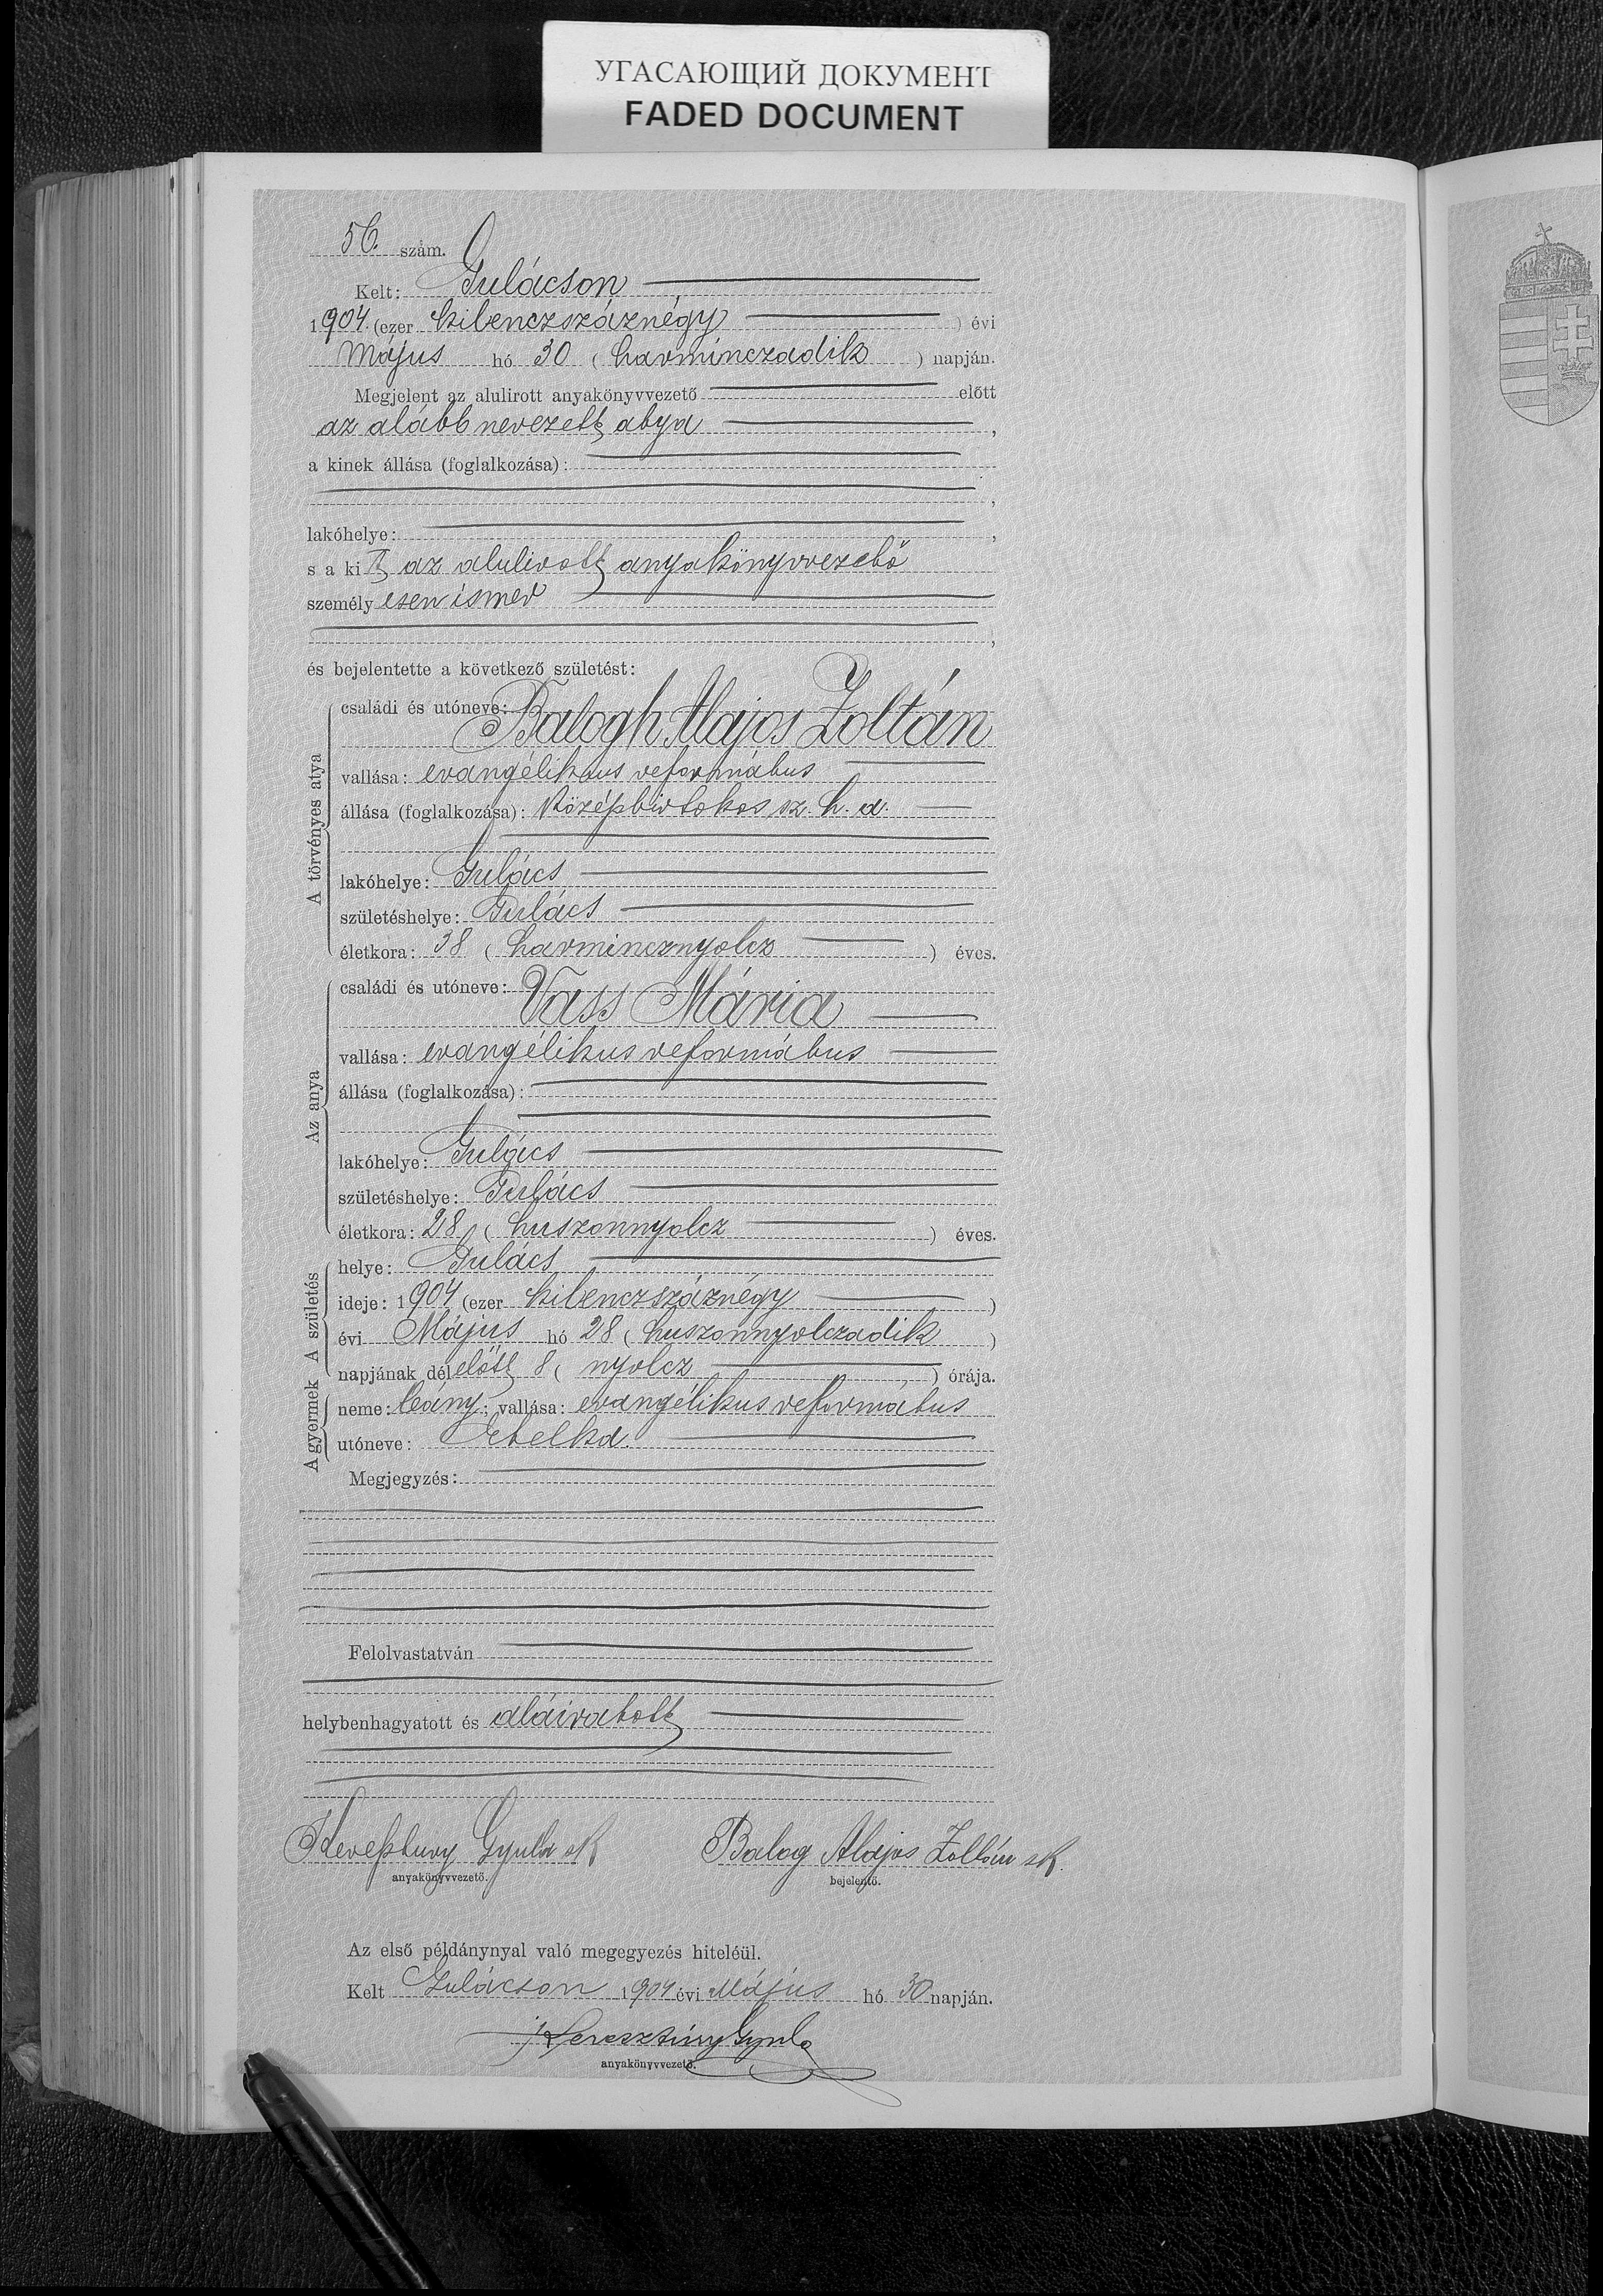 УГАСАЮЩИЙ ДОКУМЕНТ
FADED DOCUMENT
56. szám.
Kelt: Gulácson
1904. (ezer kilenczszáznégy) évi
Május hó 30 (harminczadik) napján.
Megjelent az alulirott anyakönyvvezető előtt
az alább nevezett atya,
a kinek állása (foglalkozása):
,
lakóhelye: ,
s a kit az alulirott anyakönyvvezető
személyesen ismer
,
és bejelentette a következő születést:
A törvényes atya
családi és utóneve: Balogh Alajos Zoltán
vallása: evangélikus református
állása (foglalkozása): középbirtokos sz. h. a.
lakóhelye: Gulács
születéshelye: Gulács
életkora: 38 (harmincznyolcz) éves.
Az anya
családi és utóneve: Vass Mária
vallása: evangélikus református
állása (foglalkozása):
lakóhelye: Gulács
születéshelye: Gulács
életkora: 28 (huszonnyolcz) éves.
A születés
helye: Gulács
ideje: 1904 (ezer kilenczszáznégy)
évi Május hó 28 (huszonnyolczadik)
napjának délelőtt 8 (nyolcz) órája.
A gyermek
neme: leány; vallása: evangélikus református
utóneve: Etelka.
Megjegyzés:
Felolvastatván
helybenhagyatott és aláiratott
Keresztury Gyula sk
anyakönyvvezető.
Balog Alajos Zoltán sk.
bejelentő.
Az első példánynyal való megegyezés hiteléül.
Kelt Gulácson 1904 évi Május hó 30 napján.
Keresztúry Gyula
anyakönyvvezető.